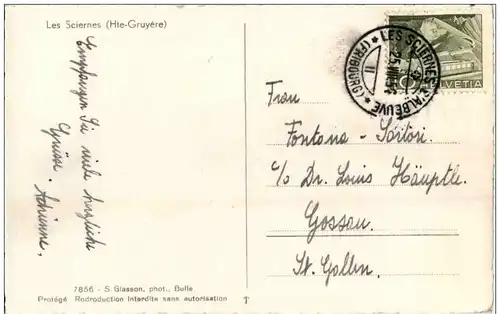 Les Sciernes (Hte-Gruyère)
Empfangen Sie viele herzliche
Grüsse. Adrienne.
7856 - S. Glasson, phot., Bulle
Protégé Rodroduction Interdite sans autorisation
T
LES SCIERNES D'ALBEUVE
(FRIBOURG)
HELVETIA
Frau
Fontana - Sartori.
c/o Dr. Louis Häuptle.
Gossau.
St. Gallen.